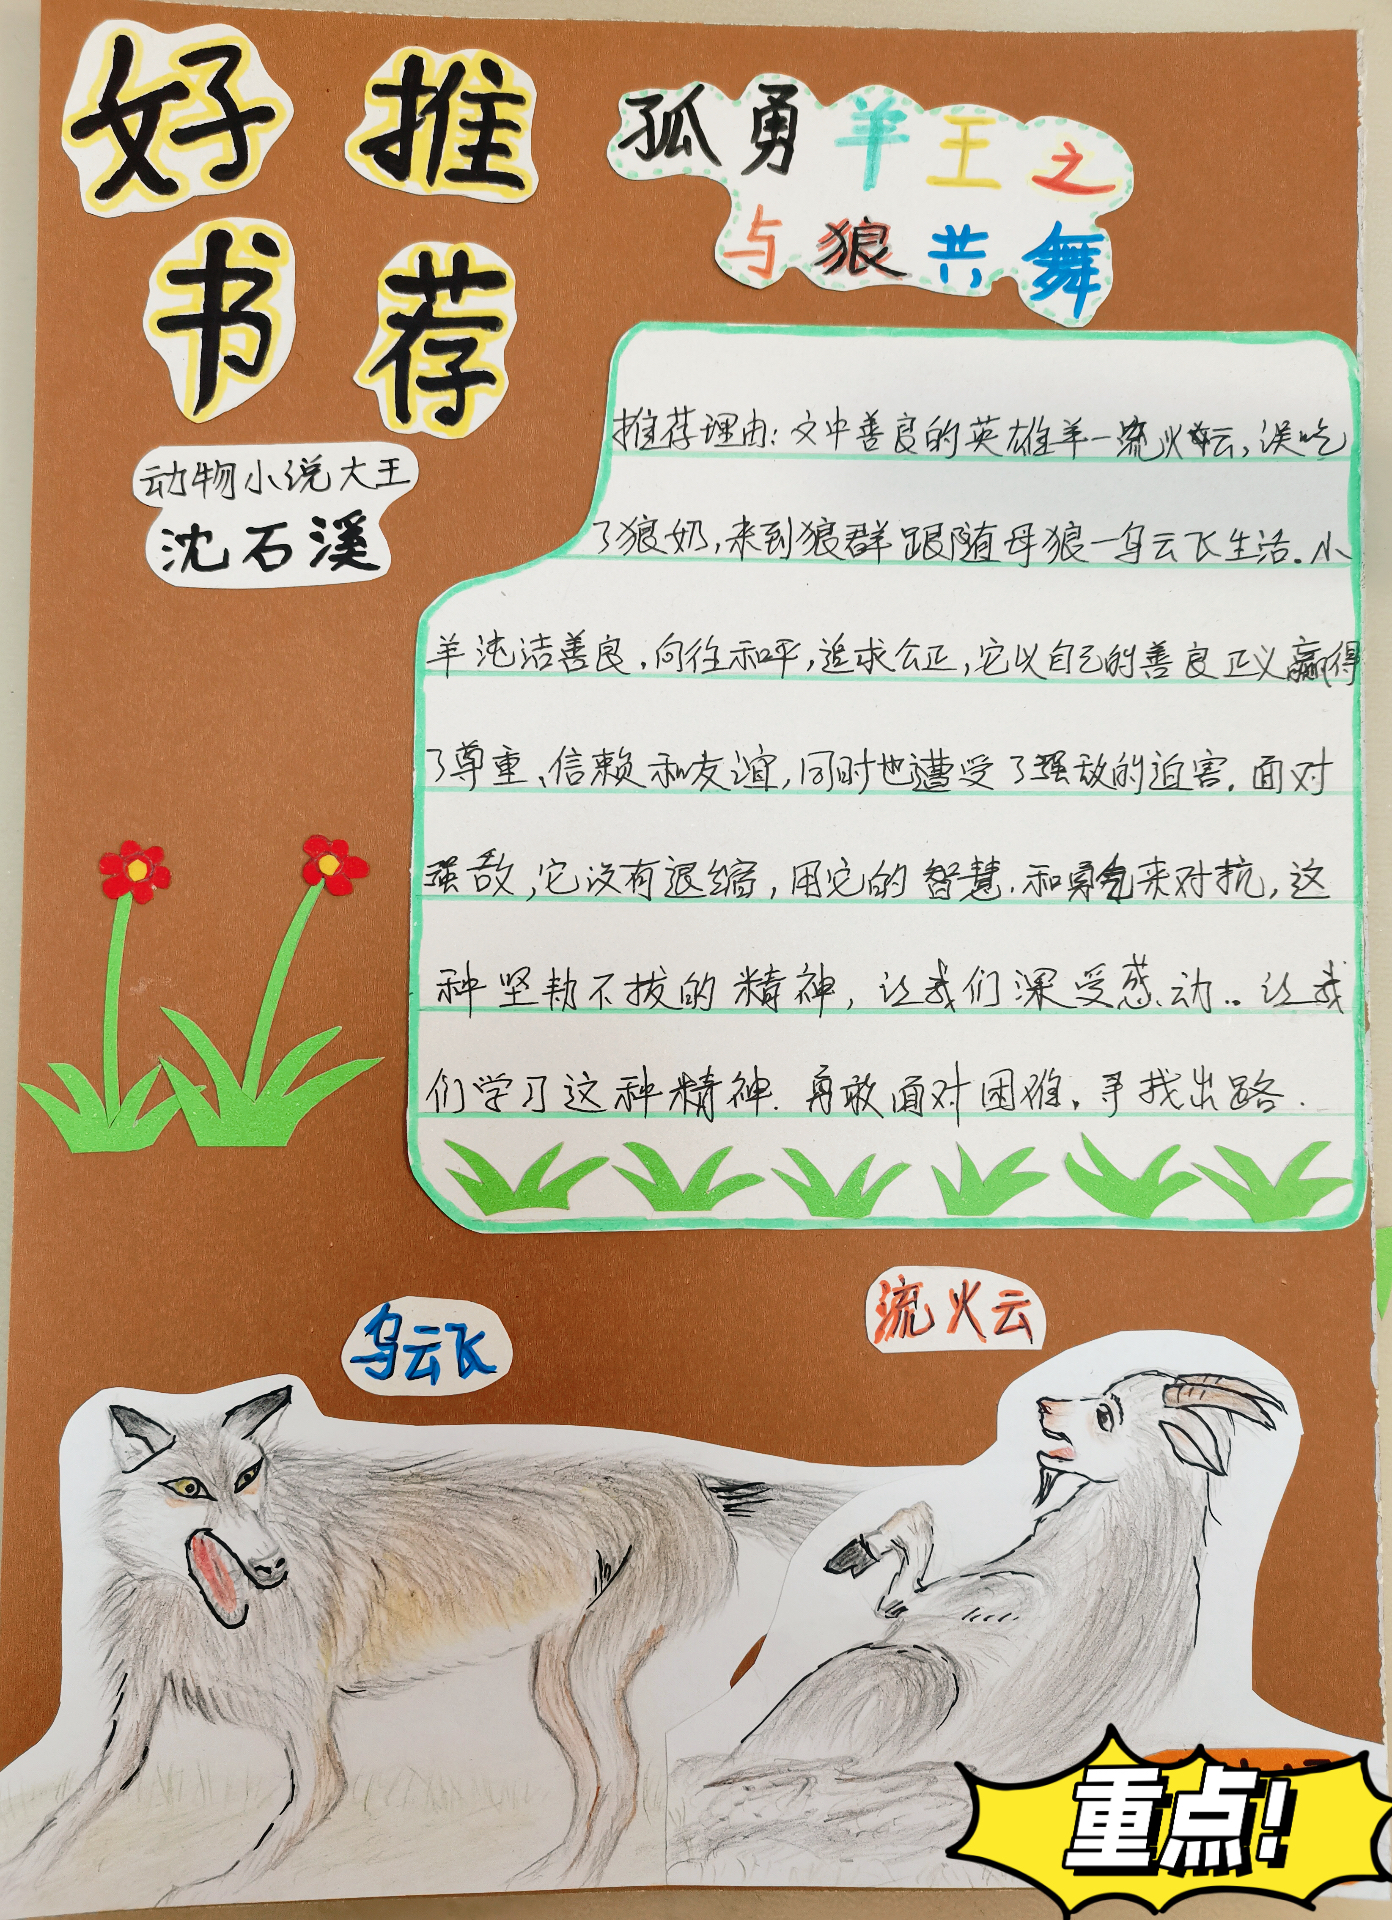 好推
书荐
孤勇羊王之
与狼共舞
动物小说大王
沈石溪
推荐理由:文中善良的英雄羊—流火云,误吃
了狼奶,来到狼群跟随母狼—乌云飞生活。小
羊纯洁善良,向往和平,追求公正,它以自己的善良正义赢得
了尊重、信赖和友谊,同时也遭受了强敌的迫害。面对
强敌,它没有退缩,用它的智慧.和勇气来对抗,这
种坚韧不拔的精神,让我们深受感动..让我
们学习这种精神.勇敢面对困难,寻找出路.
乌云飞
流火云
重点!